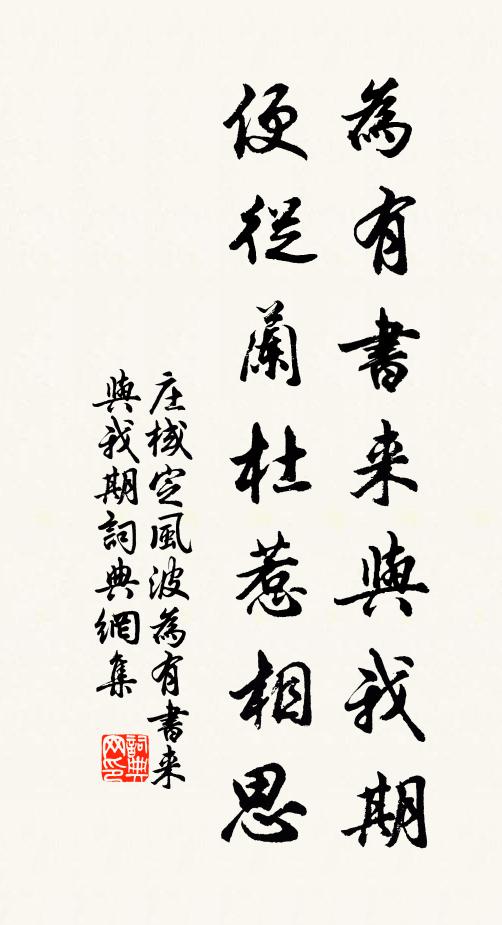 為有書来與我期
便從蘭杜惹相思
庄棫定風波為有書来
與我期詞典網集
詞典
网印